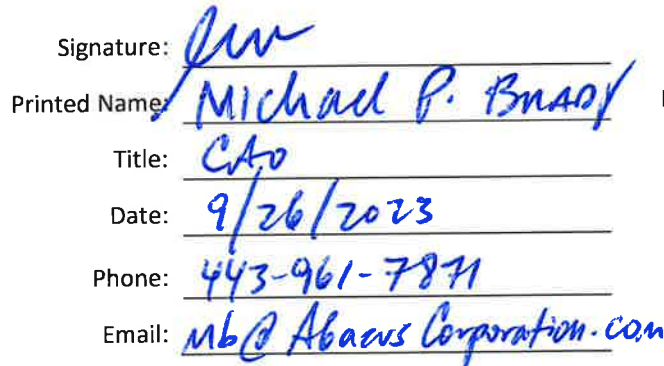 Signature:
Printed Name: Michael P. BRADY
Title: CAO
Date: 9/26/2023
Phone: 443-961-7871
Email: mb@AbacusCorporation.com